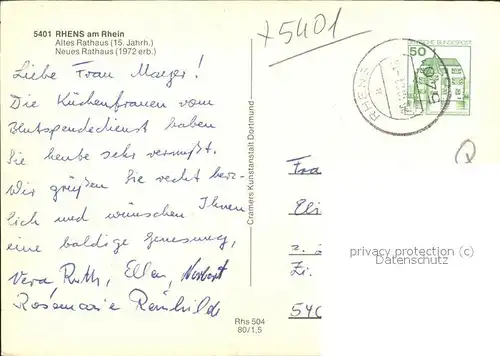 5401 RHENS am Rhein
Altes Rathaus (15. Jahrh.)
Neues Rathaus (1972 erb.)
5401
Liebe Frau Mayer!
Die Küchenfrauen vom
Blutspendedienst haben
Sie heute sehr vermißt.
Wir grüßen Sie recht herz-
lich und wünschen Ihnen
eine baldige Genesung,
Vera Ruth, Ellen, Norbert
Rosemarie Reinhilde
Cramers Kunstanstalt Dortmund
Rhs 504
80/1,5
50
DEUTSCHE BUNDESPOST
RHENS
a
5401
Fra
Eli
z. 
Zi.
540
privacy protection (c)
Datenschutz